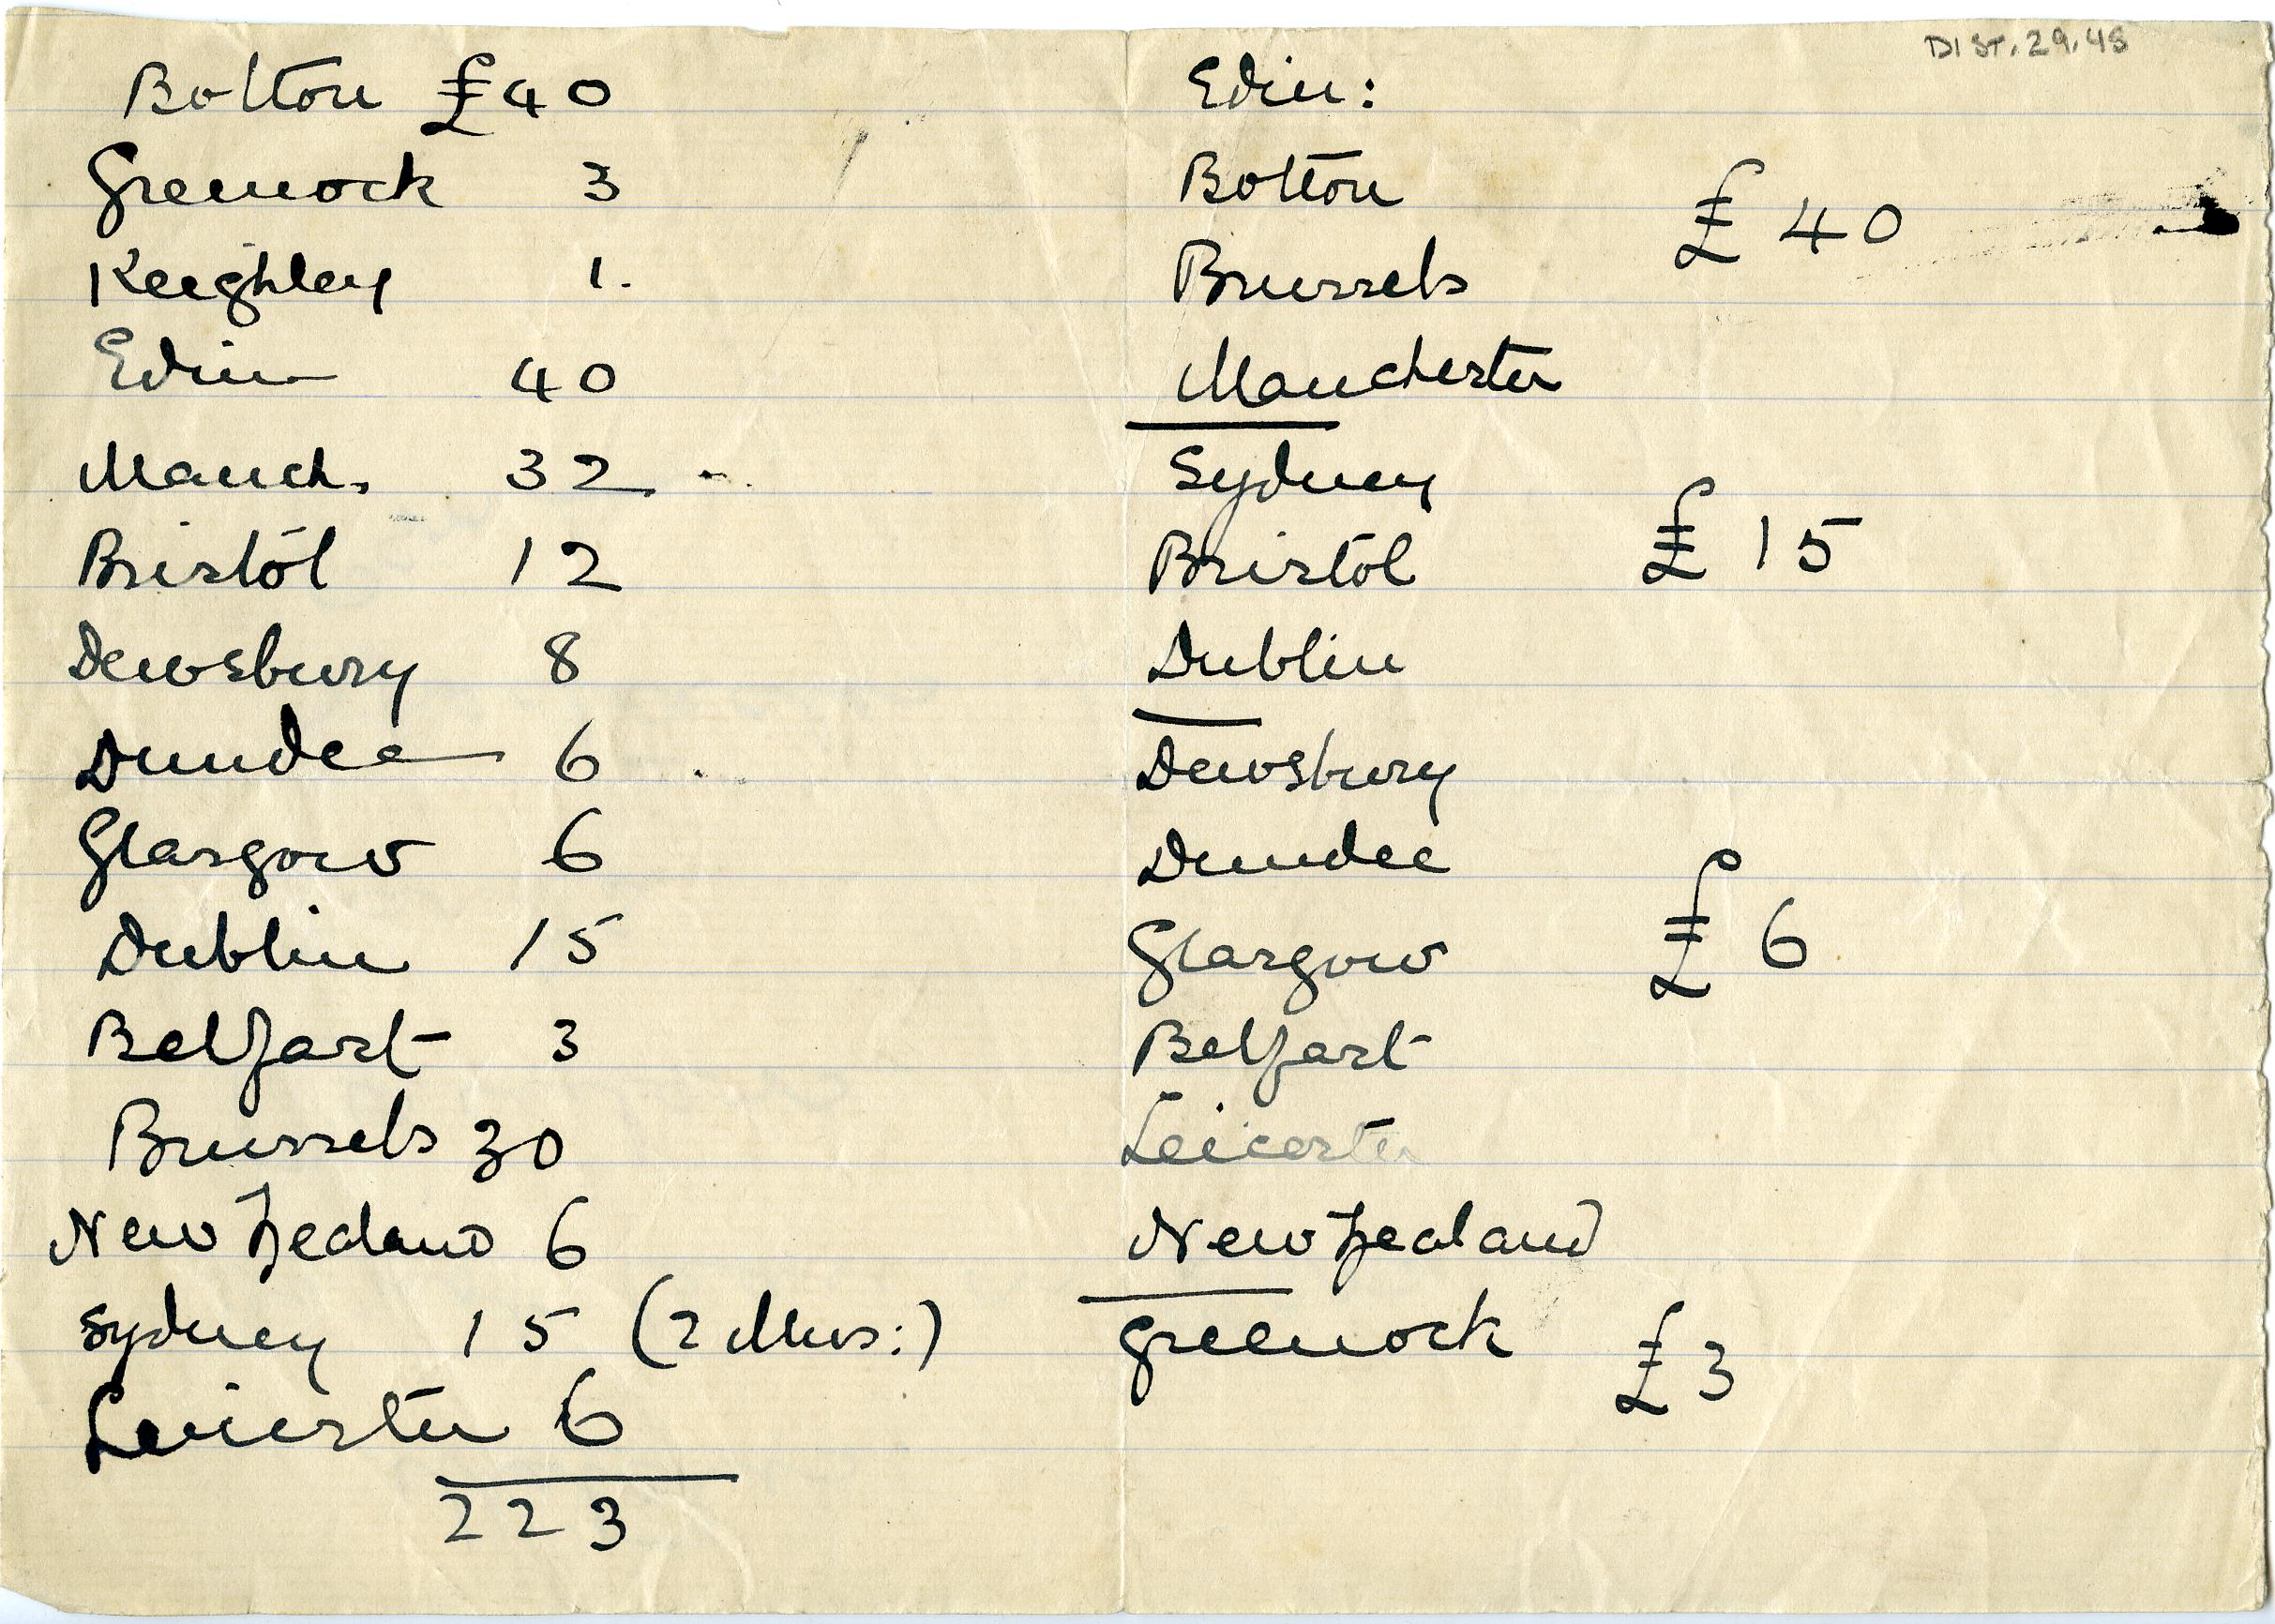 DIST.29.45
Bolton £40
Greenock 3
Keighley 1.
Edin 40
Manch. 32
Bristol 12
Dewsbury 8
Dundee 6
Glasgow 6
Dublin 15
Belfast 3
Brussels 30
New Zealand 6
Sydney 15 (2 Mus:)
Leicester 6
223
Edin:
Bolton
£40
Brussels
Manchester
Sydney
Bristol £15
Dublin
Dewsbury
Dundee
Glasgow £6
Belfast
Leicester
New Zealand
Greenock £3